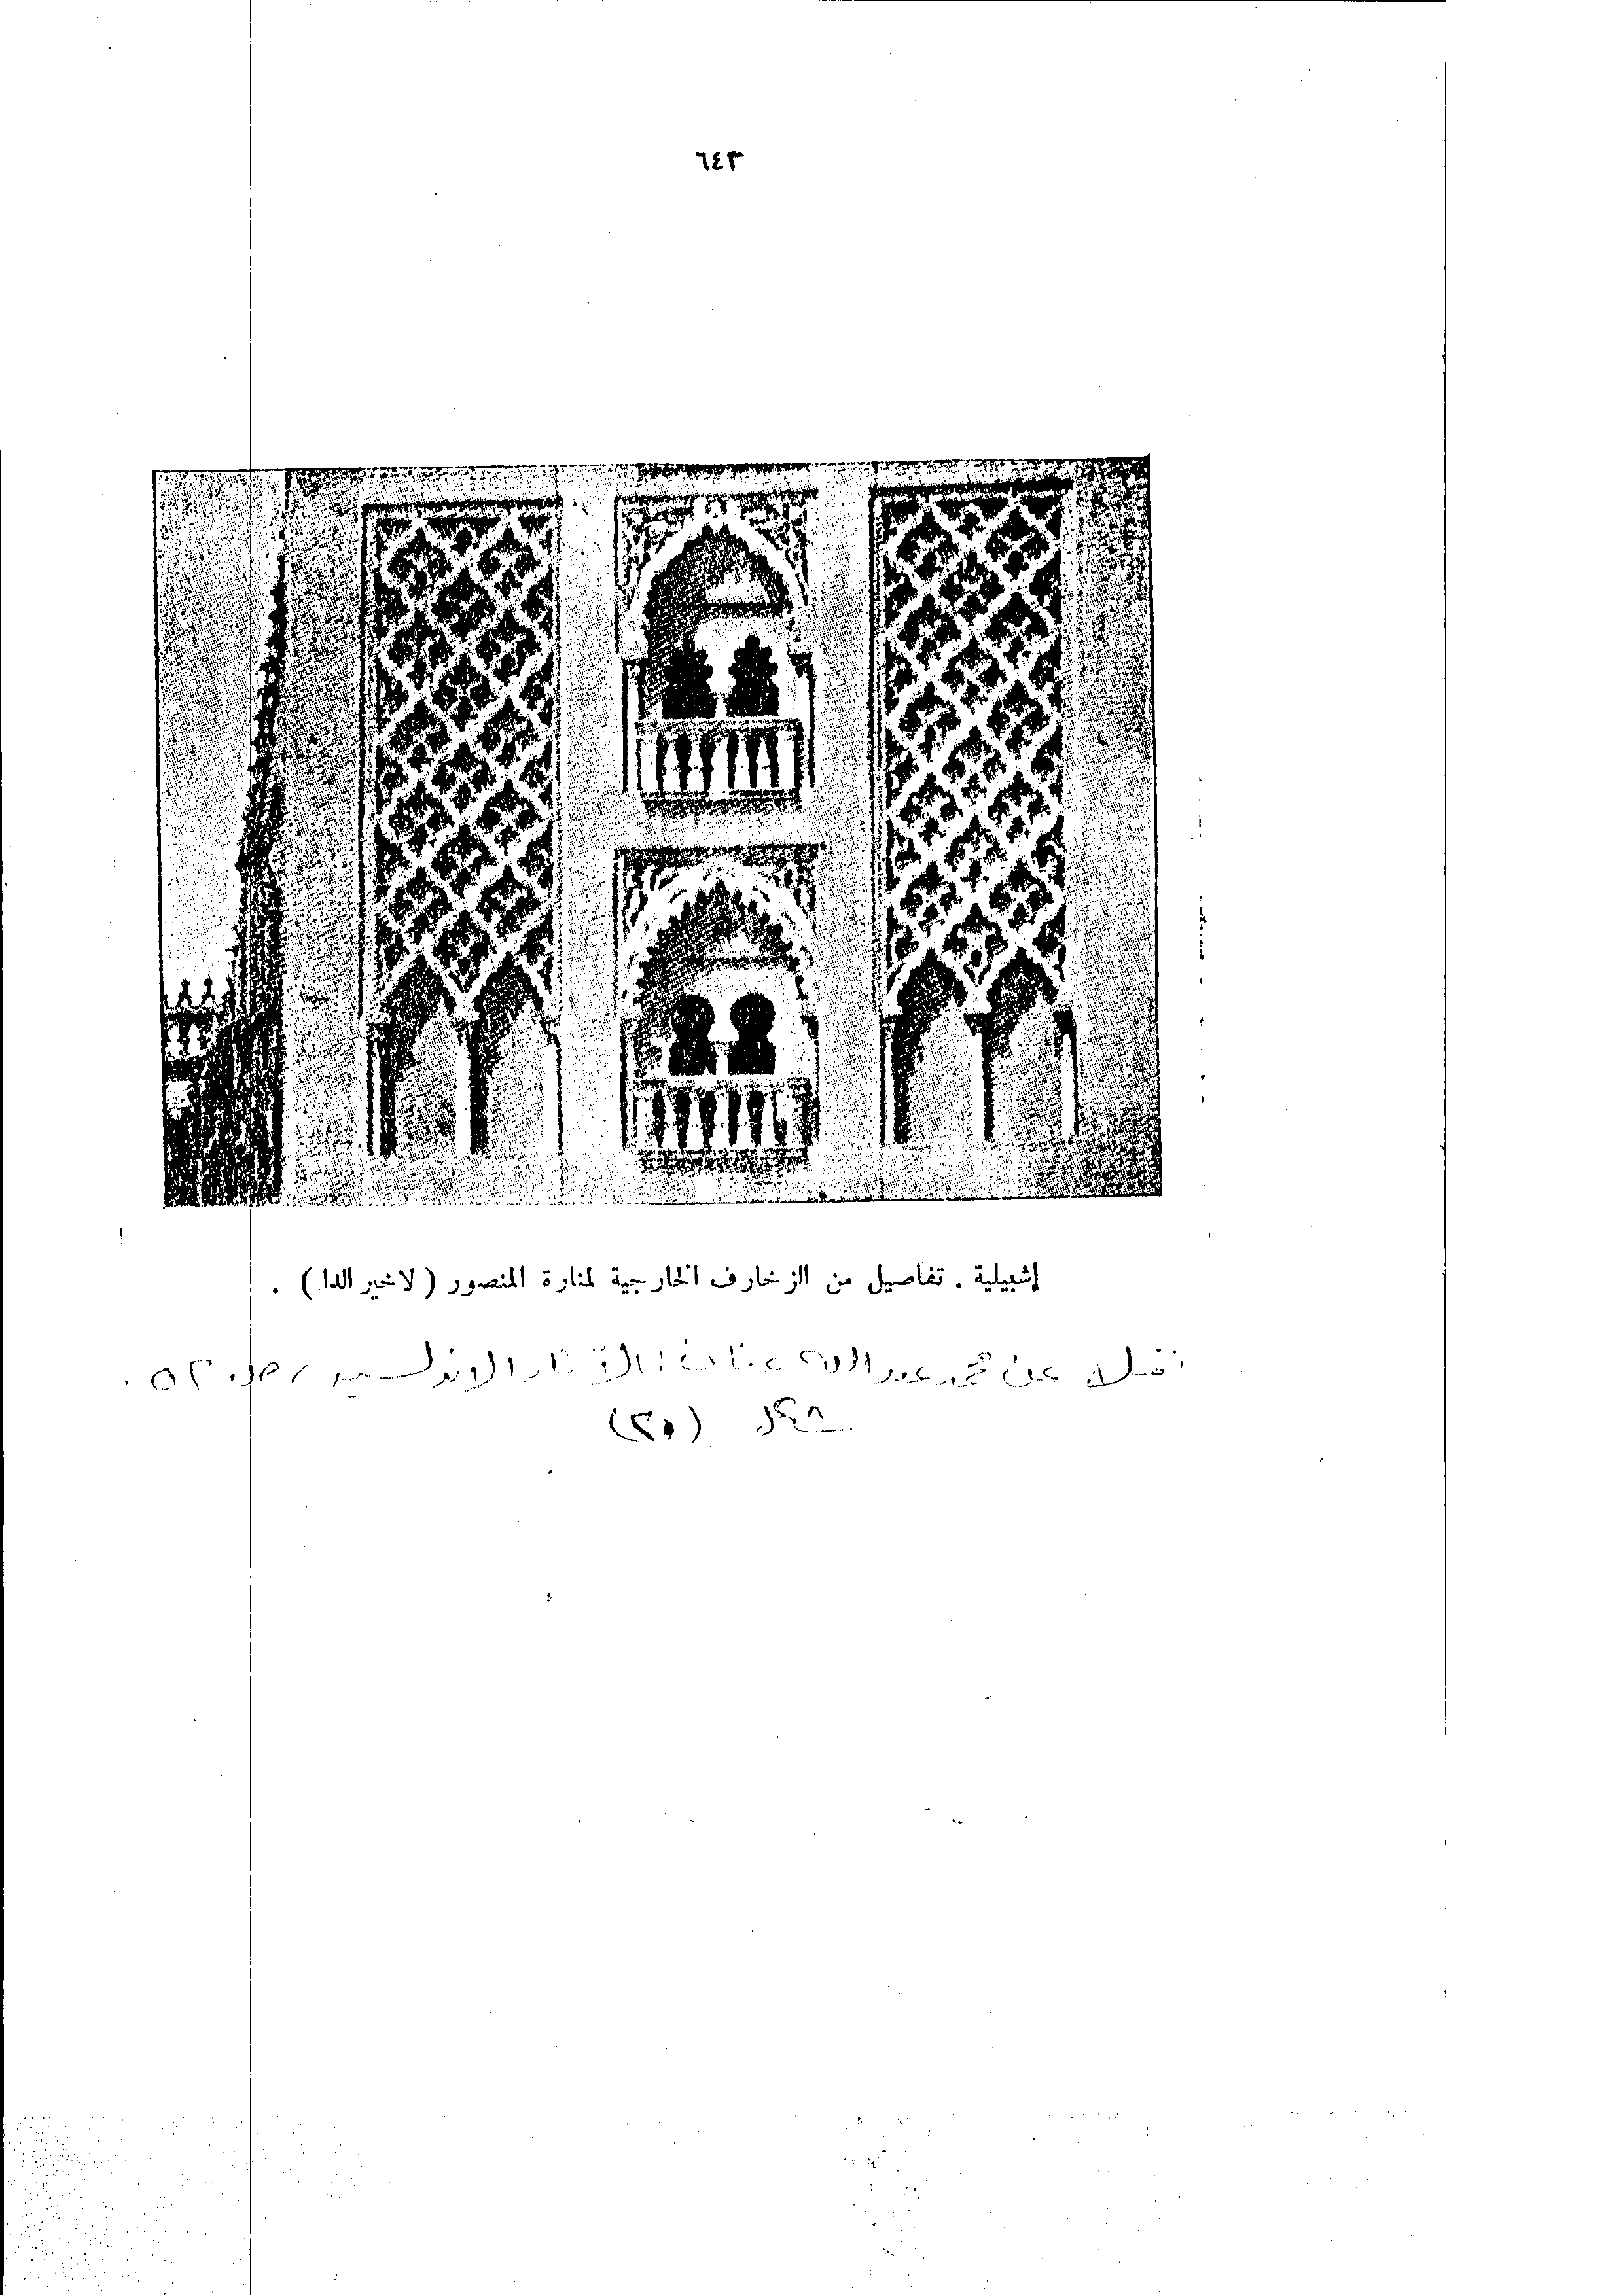 ٦٤٣
إشبيلية . تفاصيل من الزخارف الخارجية لمنارة المنصور ( لاخير الدا ) .
نقلا عن محمد عبد الله عنان : الآثار الاندلسية ، ص ٥٢ .
شكل (٢٥)